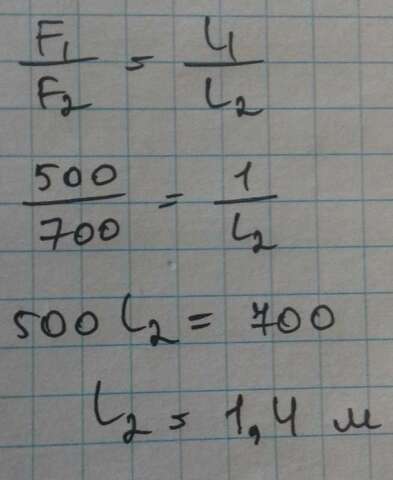 F₁/F₂ = L₁/L₂
500/700 = 1/L₂
500 L₂ = 700
L₂ = 1,4 м